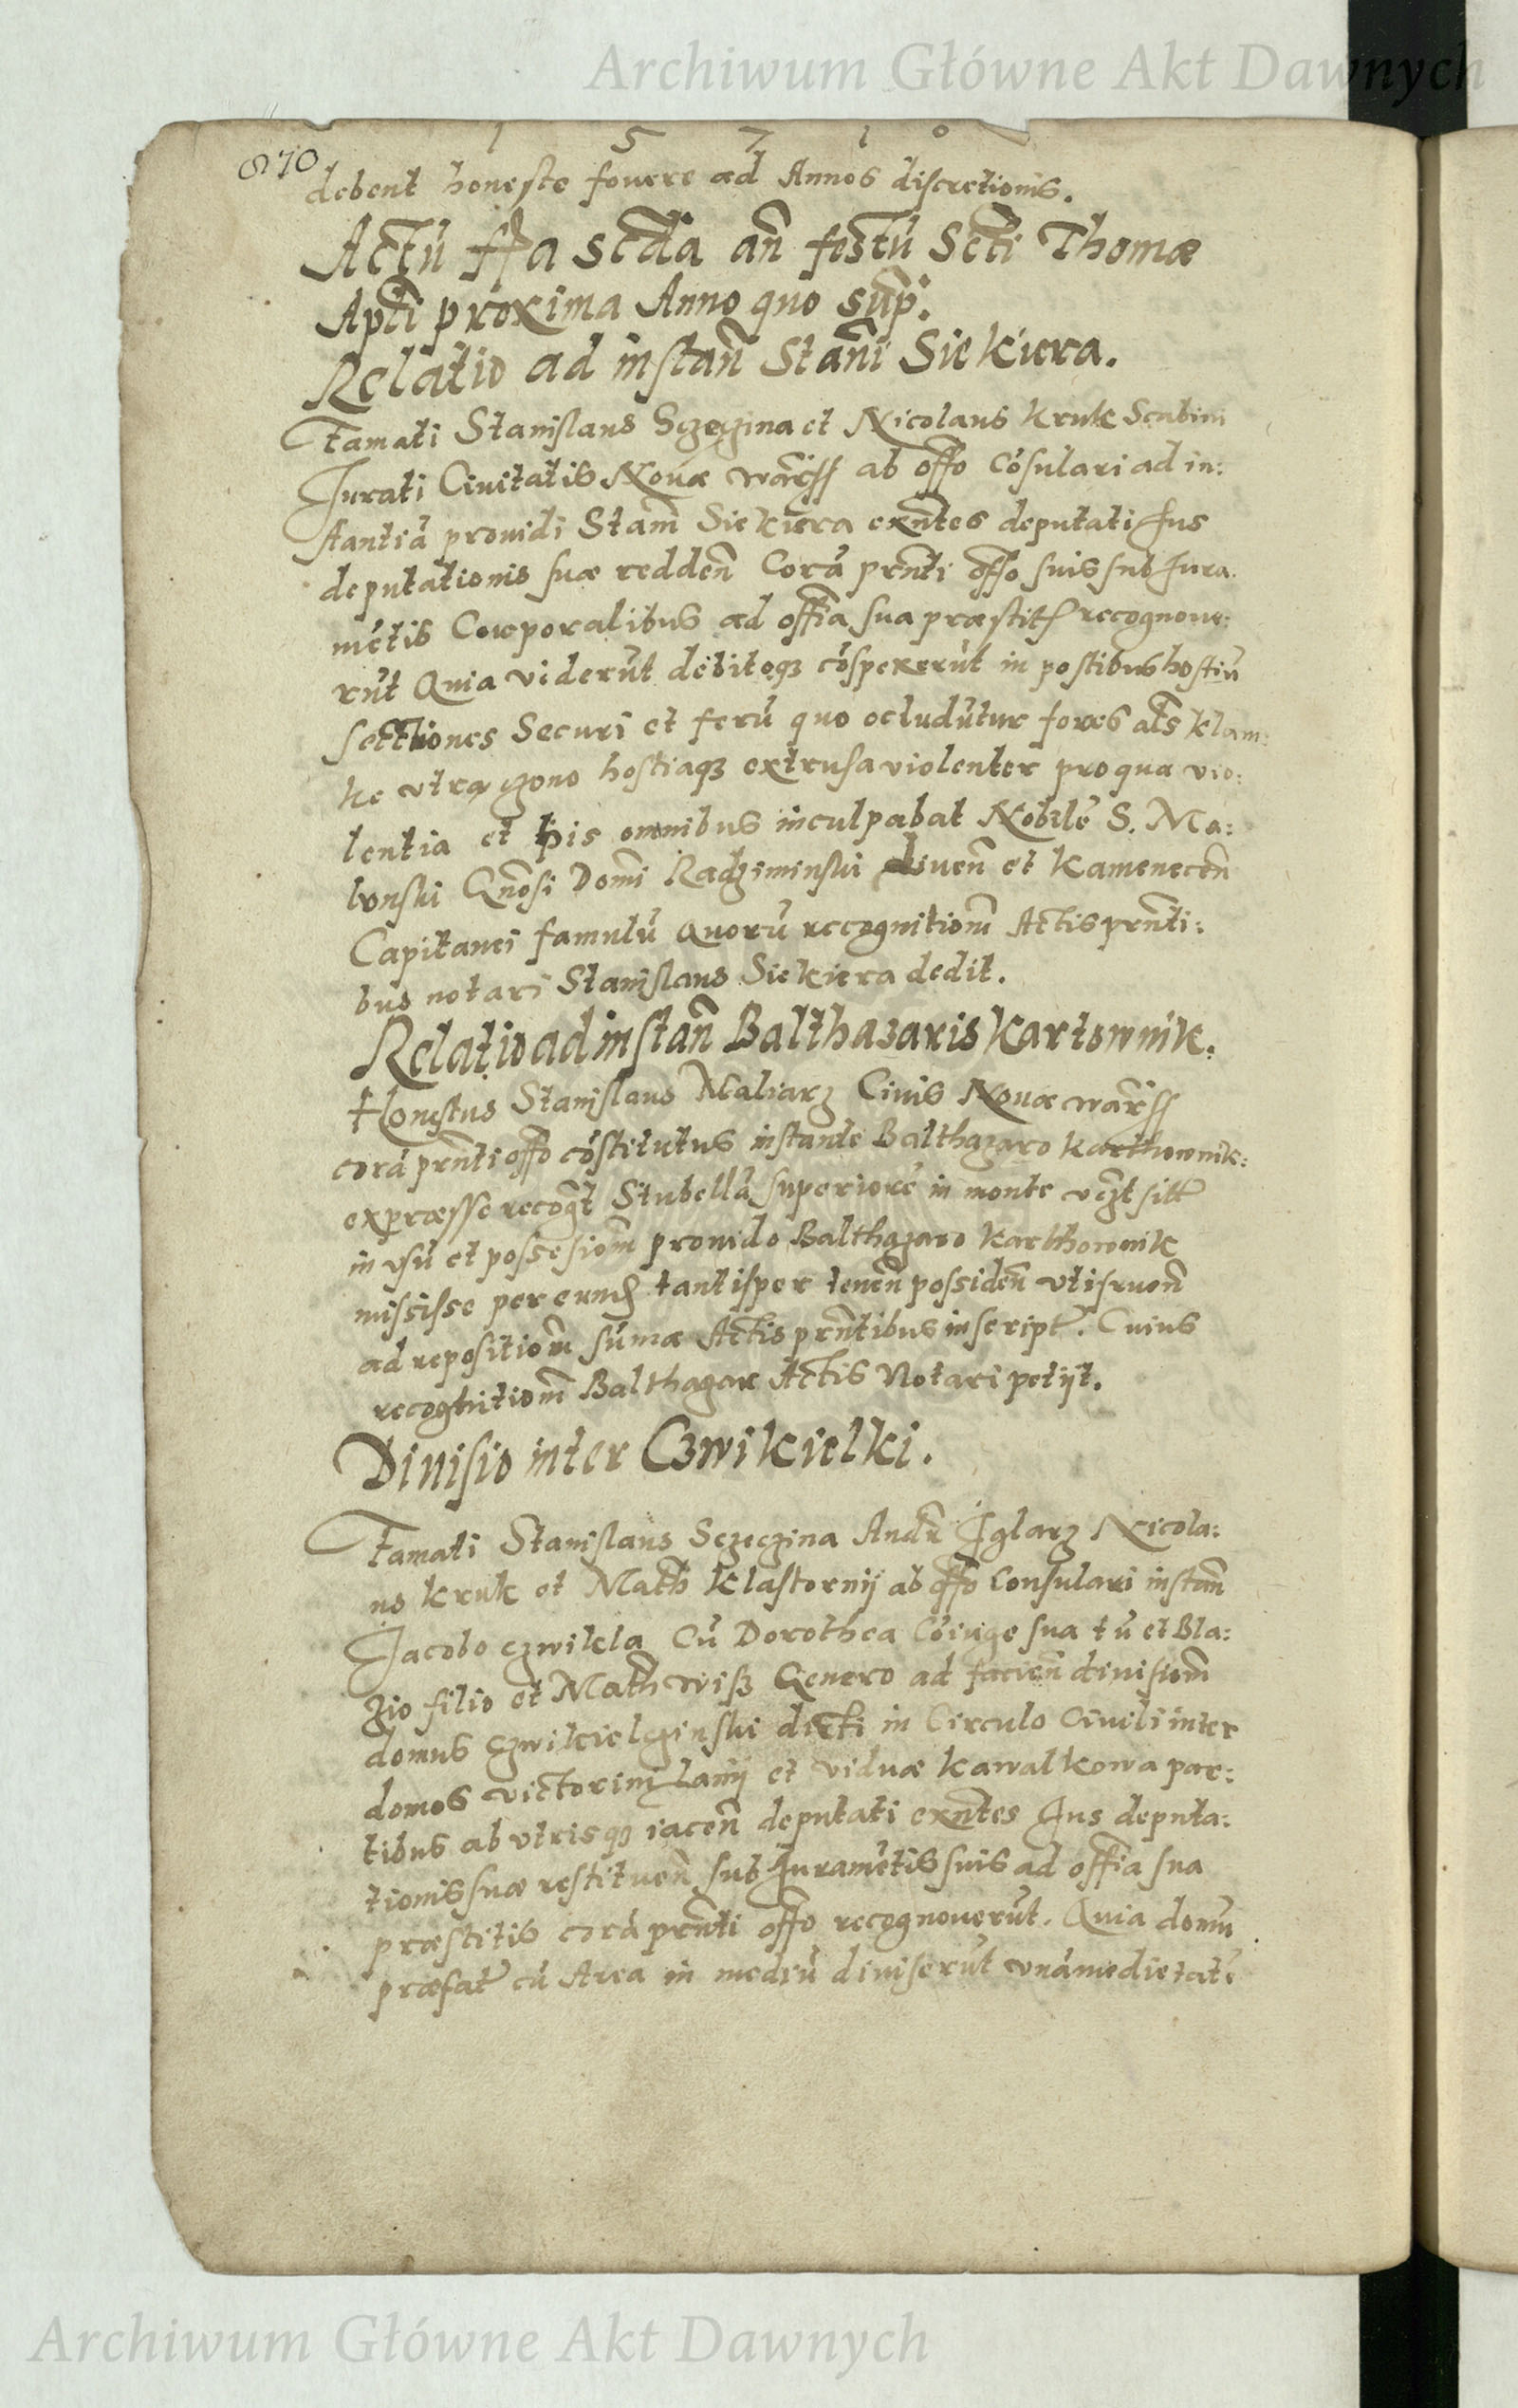 Archiwum Główne Akt Dawnych
870
1 5 7 1 0
debent honeste fouere ad Annos discretionis.
Actū ffa scda an̄ festū Scti Thomæ
Apti proxima Anno quo sup:
Relatio ad instan̄ Stani Siekiera.
Famati Stanislaus Sczeczina et Nicolaus Kruk Scabini
Jurati Ciuitatis Nouæ warss ab offo Cōsulari ad in:
stantiā prouidi Stani Siekiera exn̄tes deputati Jus
deputationis suæ redden̄ Corā prn̄ti offo suis sub Jura.
mētis Corporalibus ad offia sua præstitis recognoue:
rūt Quia viderūt debitoqz cōspexerūt in postibus hostiū
sectiones Securi et ferū quo ocludūtur fores als klam:
ke vtrągono hostiaqz extrusa violenter pro qua vio:
lentia et his omnibus inculpabat Nobilē S. Ma:
lonski Gnosi Domi Radziminski Liuen̄ et Kamenecen̄
Capitanei famulū quorū recognitionē Actis prn̄ti:
bus notari Stanislaus Siekiera dedit.
Relatio ad instan̄ Balthazaris Kartownik.
Honestus Stanislaus Maliarz Ciuis Nouæ warss
corā prn̄ti offo cōstitutus instante Balthazaro Karthownik:
expræsse recogt Stubellā superiorē in monte sitt
in vsū et possesionē prouido Balthazaro Karthownik
mississe per eund tantisper tenen̄ possiden̄ vtifruen̄
ad repositionē sūmæ Actis prn̄tibus inscript. Cuius
recognitionē Balthazar Actis Notari petijt.
Diuisio inter Czwikielki.
Famati Stanislaus Sczeczina Andr Iglarz Nicola:
us Kruk et Math Klastornij ab offo Consulari instan̄
Jacobo czwikla Cū Dorothea Cōiuge sua tū et Bla:
zio filio et Math wisz Genero ad facien̄ diuisionē
domus czwikielczinski dicti in Circulo Ciuili inter
domos victorini Lanij et viduæ Kawalkowa par:
tibus ab vtrisqz iacen̄ deputati exn̄tes Jus deputa:
tionis suæ restituen̄ sub Juramētis suis ad offia sua
præstitis corā prn̄ti offo recognouerūt. Quia domū
præfat cū Area in mediū diuiserūt vnā medietatē
Archiwum Główne Akt Dawnych